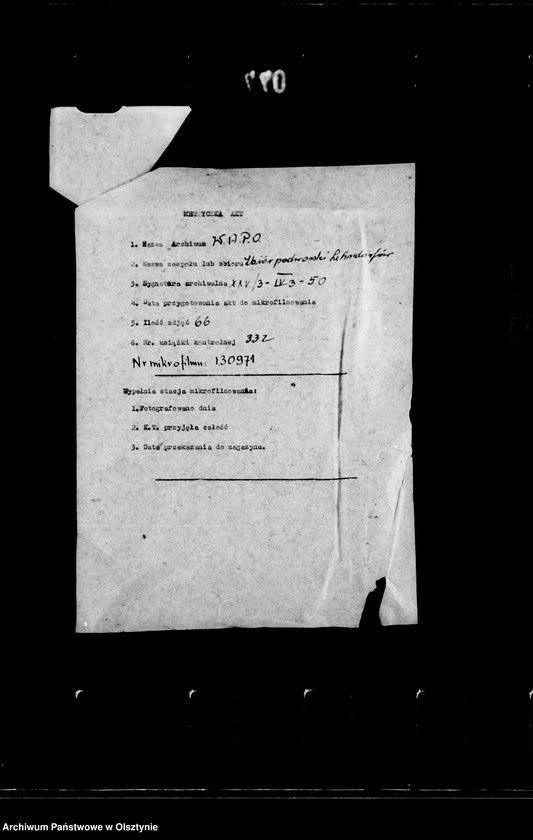 METRYCZKA AKT
1. Nazwa Archiwum W.A.P.O.
2. Nazwa zespołu lub zbioru Zbiór podworski Lehndorfów
3. Sygnatura archiwalna XXV/3 - IV 3 - 50
4. Data przygotowania akt do mikrofilmowania
5. Ilość zdjęć 66
6. Nr. książki kontrolnej 332
Nr mikrofilmu: 130971
Wypełnia stacja mikrofilmowania:
1.Fotografowano dnia
2. K.T. przyjęła całość
3. Data przekazania do magazynu.
Archiwum Państwowe w Olsztynie